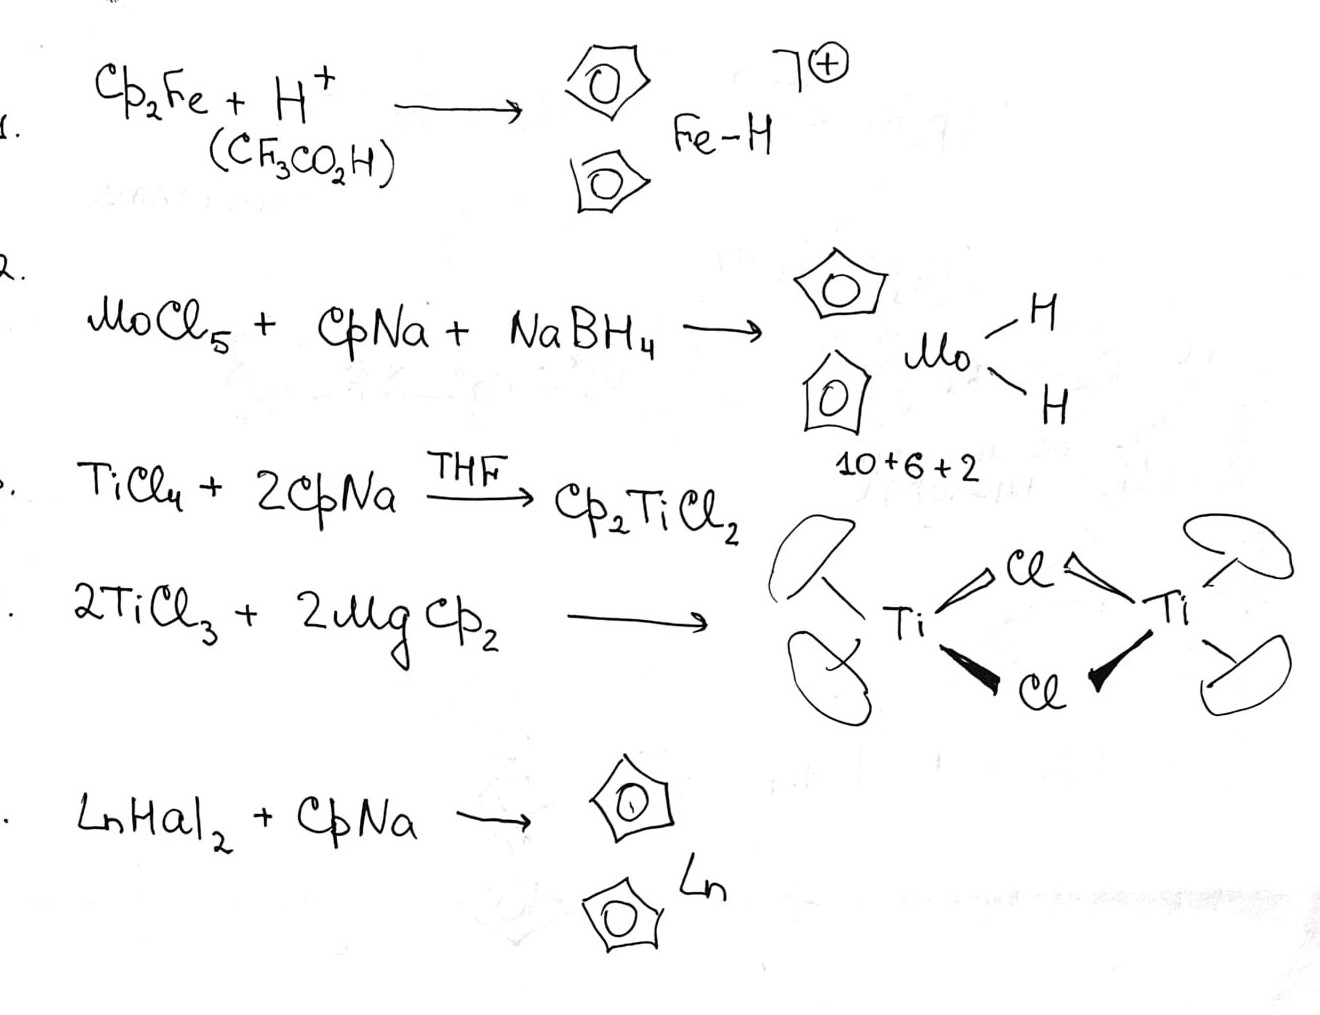 1. Cp₂Fe + H⁺ ⟶ Fe–H ]⊕
(CF₃CO₂H)
2.
MoCl₅ + CpNa + NaBH₄ ⟶ Mo H H
10+6+2
. TiCl₄ + 2CpNa THF ⟶ Cp₂TiCl₂
. 2TiCl₃ + 2MgCp₂ ⟶ Ti Cl Cl Ti
. LnHal₂ + CpNa ⟶ Ln